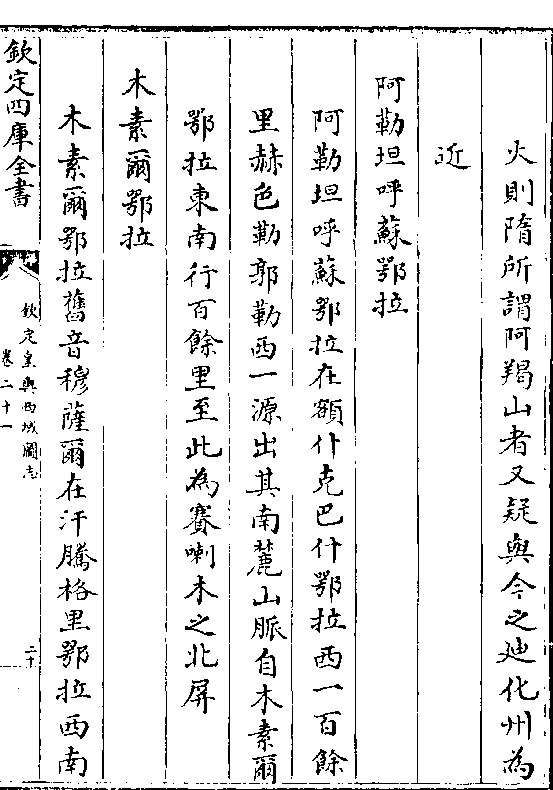 火則隋所謂阿羯山者又疑與今之廸化州為
近
阿勒坦呼蘇鄂拉
阿勒坦呼蘇鄂拉在額什克巴什鄂拉西一百餘
里赫色勒郭勒西一源出其南麓山脈自木素爾
鄂拉東南行百餘里至此為賽喇木之北屏
木素爾鄂拉
木素爾鄂拉舊音穆薩爾在汗騰格里鄂拉西南
欽定四庫全書
欽定皇輿西域圖志
卷二十一
二十